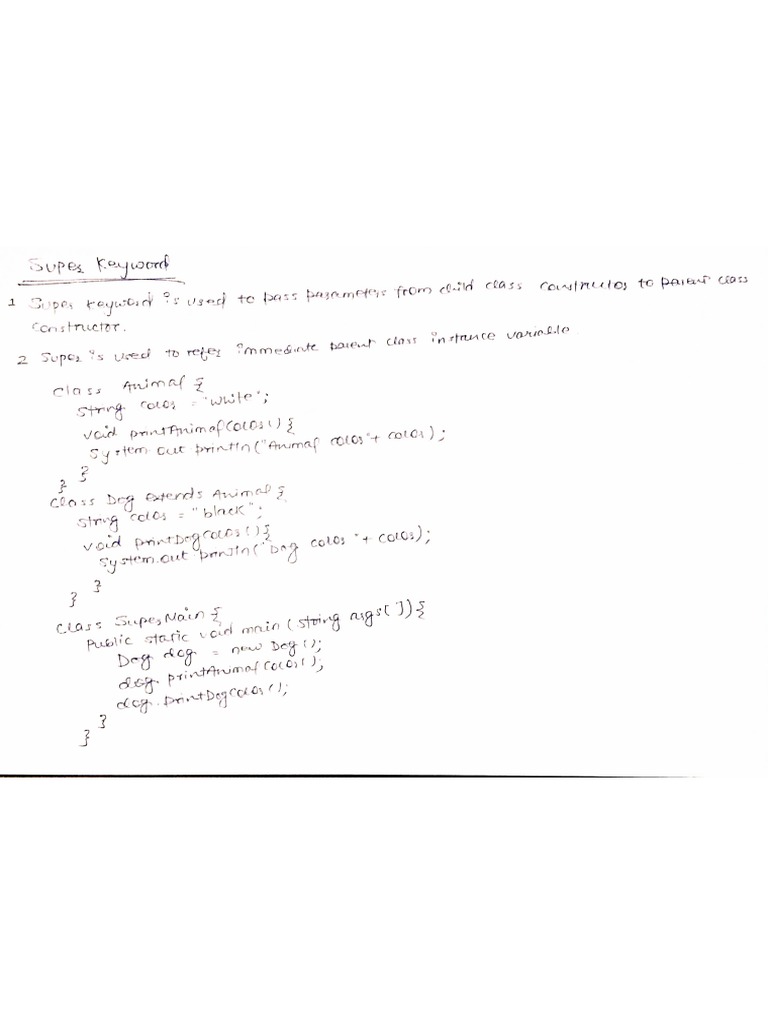 Super Keyword
1 Super Keyword is used to pass parameters from child class constructor to parent class
constructor.
2 Super is used to refer immediate parent class instance variable.
class Animal {
String color = "white";
void printAnimalColor() {
System.out println("Animal color"+ color);
}
}
class Dog extends Animal {
String color = "black";
void printDogColor() {
System.out println("Dog color"+ color);
}
}
class SuperMain {
Public static void main (String args[]) {
Dog dog = new Dog();
dog. printAnimalColor();
dog. printDogColor();
}
}